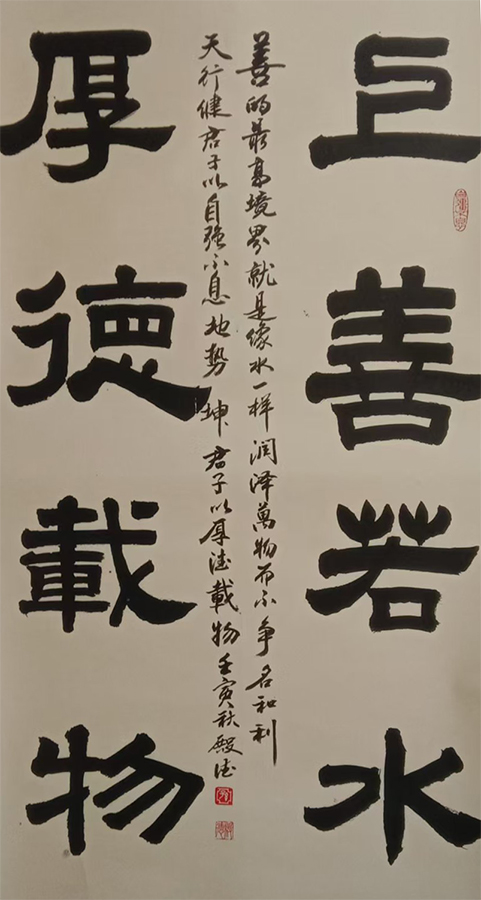 上善若水
善的最高境界就是像水一样润泽萬物而不争名和利
天行健君子以自强不息地势坤君子以厚德載物壬寅秋殿德
厚德載物